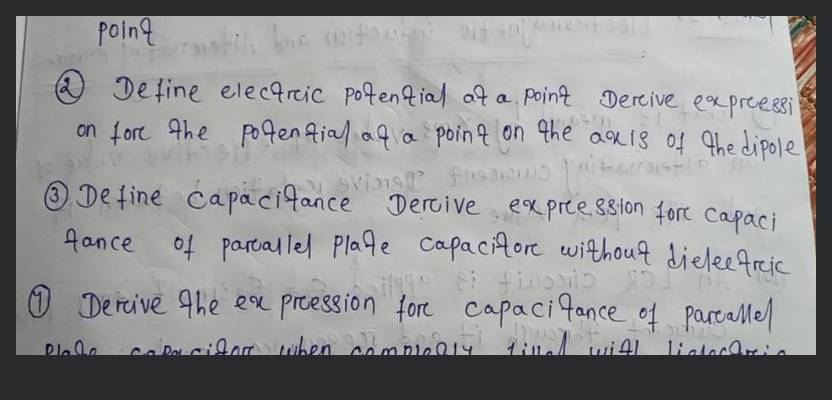 point
② Define electric potential at a point Derive expressi
on for the potential at a point on the axis of the dipole
③ Define capacitance Derive expression for capaci
tance of parallel plate capacitor without dielectric
① Derive the expression for capacitance of parallel
plate capacitor when completly filled with dielectric